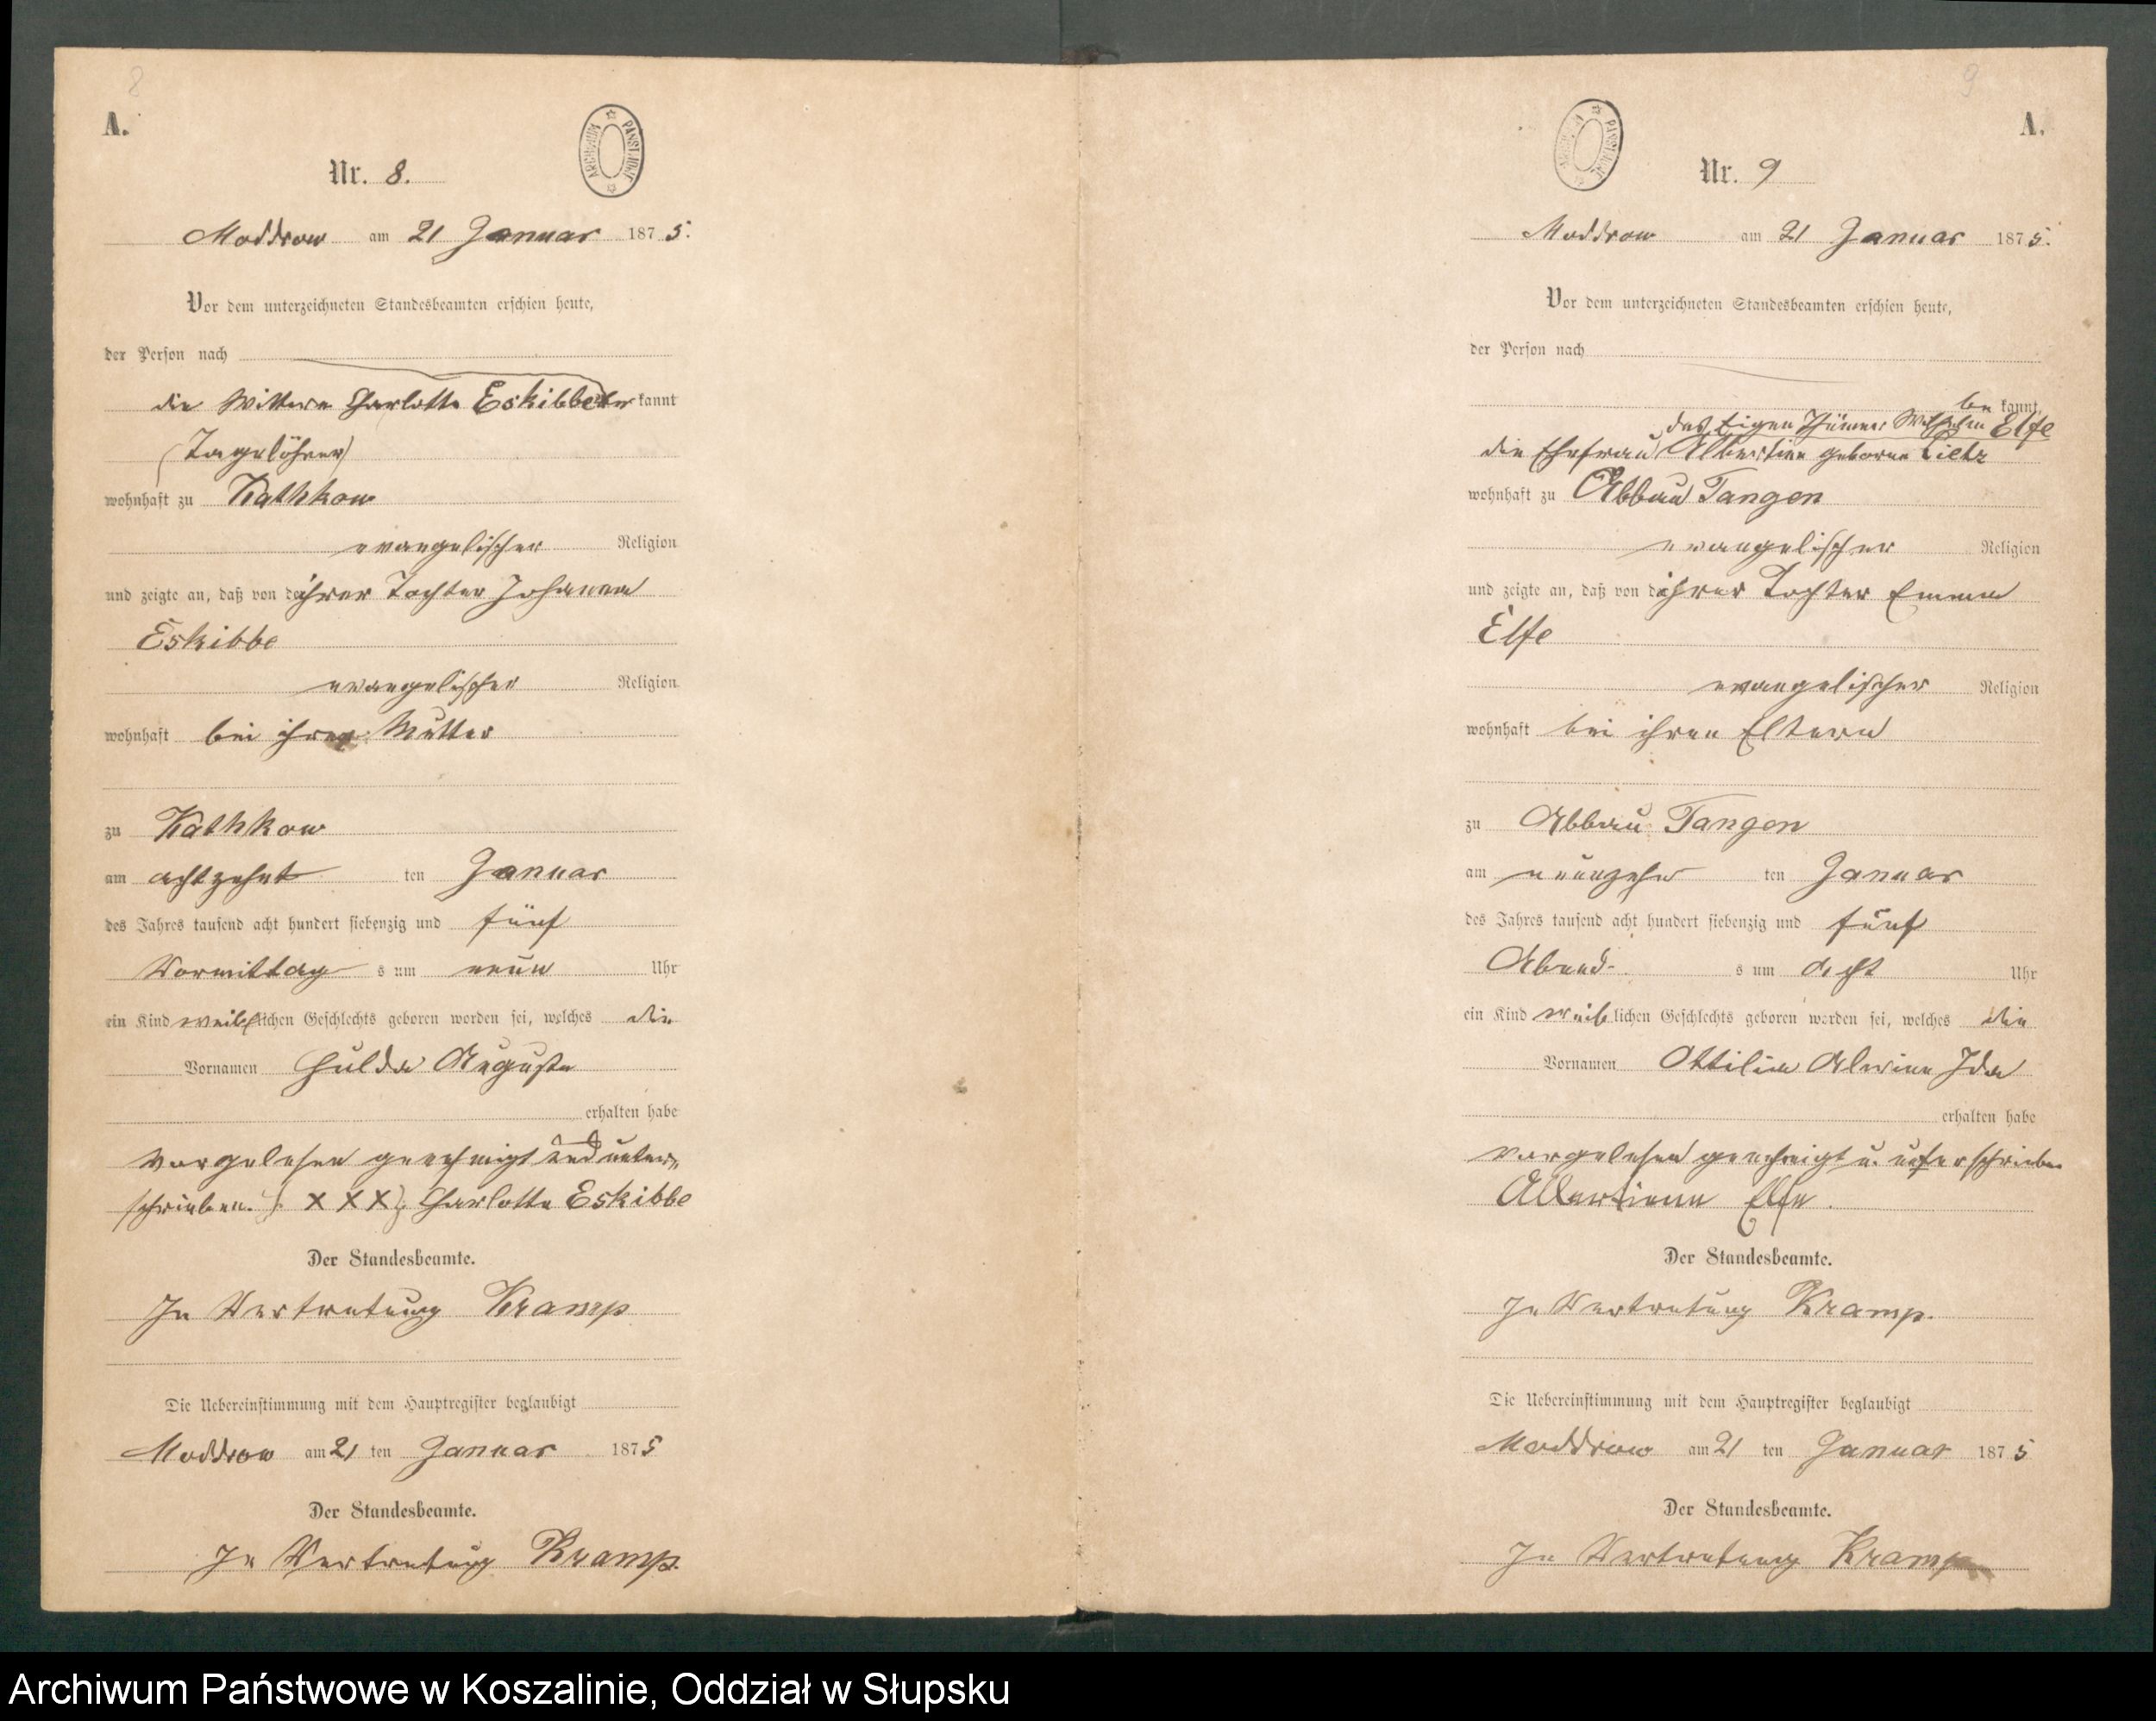 8
A.
ARCHIWUM PAŃSTWOWE
Nr. 8.
Moddrow am 21 Januar 1875.
Vor dem unterzeichneten Standesbeamten erschien heute,
der Person nach
die Wittwe Charlotte Eskibbe kannt
(Tagelöhner)
wohnhaft zu Kathkow
evangelischer Religion
und zeigte an, daß von der ihrer Tochter Johanna
Eskibbe
evangelischer Religion
wohnhaft bei ihrer Mutter
zu Kathkow
am achtzehnt ten Januar
des Jahres tausend acht hundert siebenzig und fünf
Vormittag s um neun Uhr
ein Kind weiblichen Geschlechts geboren worden sei, welches die
Vornamen Hulda Auguste
erhalten habe
Vorgelesen genehmigt und unter-
schrieben. (XXX) Charlotte Eskibbe
Der Standesbeamte.
In Vertretung Kramp
Die Uebereinstimmung mit dem Hauptregister beglaubigt
Moddrow am 21 ten Januar 1875
Der Standesbeamte.
In Vertretung Kramp.
9
A.
ARCHIWUM PAŃSTWOWE
Nr. 9
Moddrow am 21 Januar 1875.
Vor dem unterzeichneten Standesbeamten erschien heute,
der Person nach
be kannt,
des Eigenthümer Wilhelm Elfe
die Ehefrau Albertine geborne Lietz
wohnhaft zu Abbau Tangen
evangelischer Religion
und zeigte an, daß von der ihrer Tochter Emma
Elfe
evangelischer Religion
wohnhaft bei ihren Eltern
zu Abbau Tangen
am neunzehn ten Januar
des Jahres tausend acht hundert siebenzig und fünf
Abend s um acht Uhr
ein Kind weiblichen Geschlechts geboren worden sei, welches die
Vornamen Ottilie Alwine Ida
erhalten habe
Vorgelesen genehmigt u. unterschrieben
Albertiene Elfe.
Der Standesbeamte.
In Vertretung Kramp.
Die Uebereinstimmung mit dem Hauptregister beglaubigt
Moddrow am 21 ten Januar 1875
Der Standesbeamte.
In Vertretung Kramp
Archiwum Państwowe w Koszalinie, Oddział w Słupsku